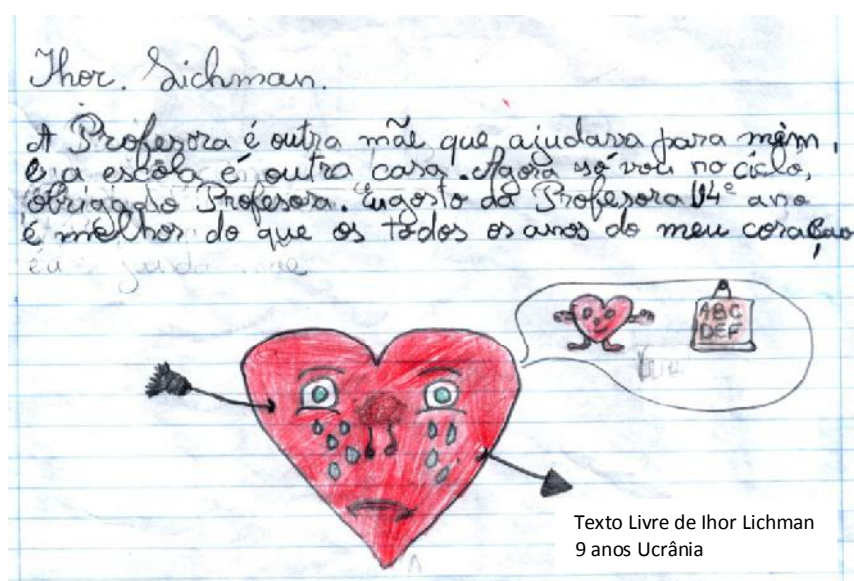 Ihor. Lichman.
A Profesora é outra mãe que ajudava para mim,
e a escôla é outra casa. Agora só vou no ciclo,
obrigado Profesora. Eu gosto da Profesora o 4º ano
é melhor do que os todos os anos do meu coração
eu
ABC
DEF
Texto Livre de Ihor Lichman
9 anos Ucrânia